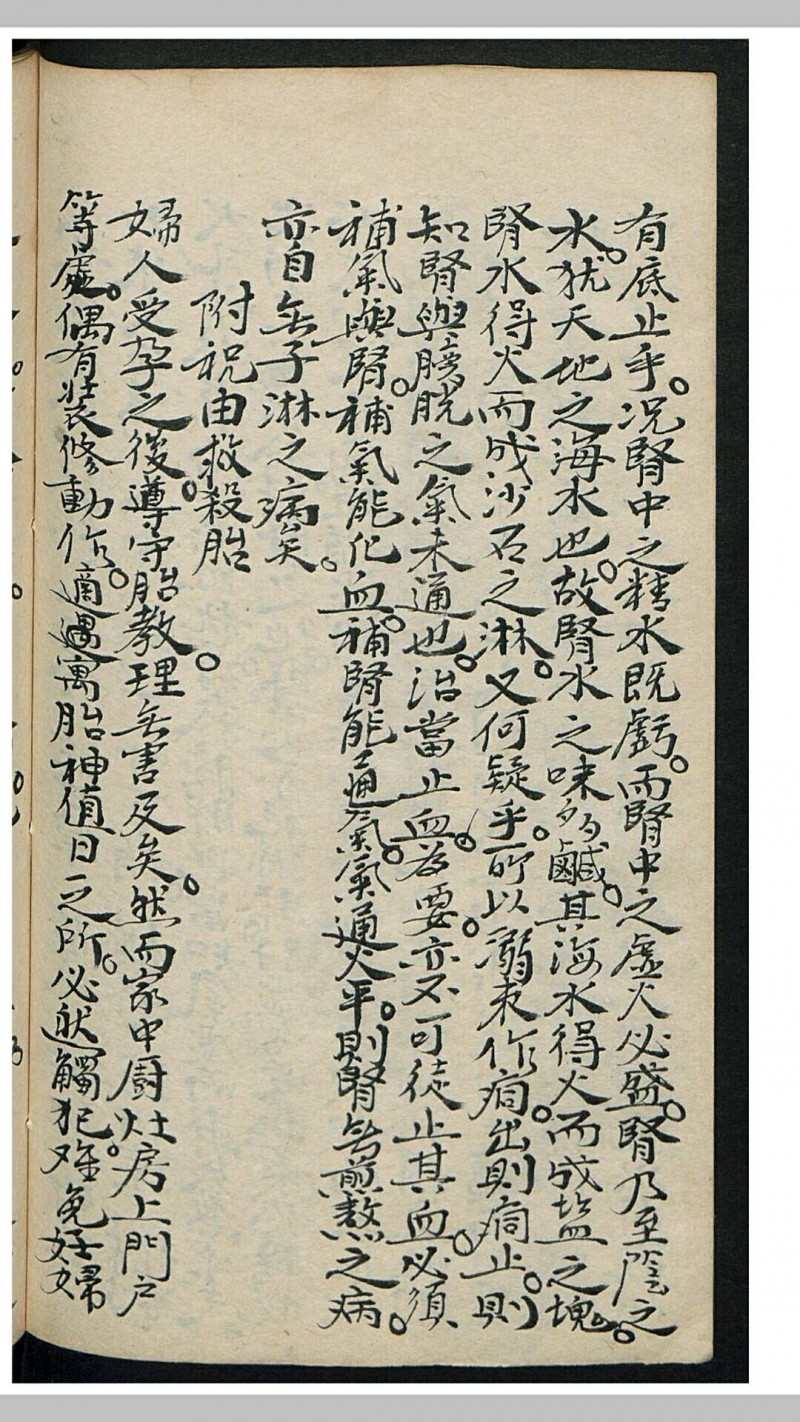 有底止乎。况腎中之精水既虧。而腎中之虛火必盛。腎乃至陰之
水。犹天地之海水也。故腎水之味多鹹。其海水得火。而成盐之塊。
腎水得火而成沙石之淋。又何疑乎。所以溺来作痛。出則痛止。則
知腎與膀胱之氣未通也。治當止血。為要。亦不可徒止其血。必須
補氣與腎。補氣能化血。補腎能通氣。氣通火平。則腎無煎熬之病。
亦自無子淋之病矣。
附祝由救殺胎。
婦人受孕之後。遵守胎教理無害及矣。然而家中厨灶房上門户
等處。偶有裝修動作。適遇寓胎神值日之所。必然觸犯。难免好婦